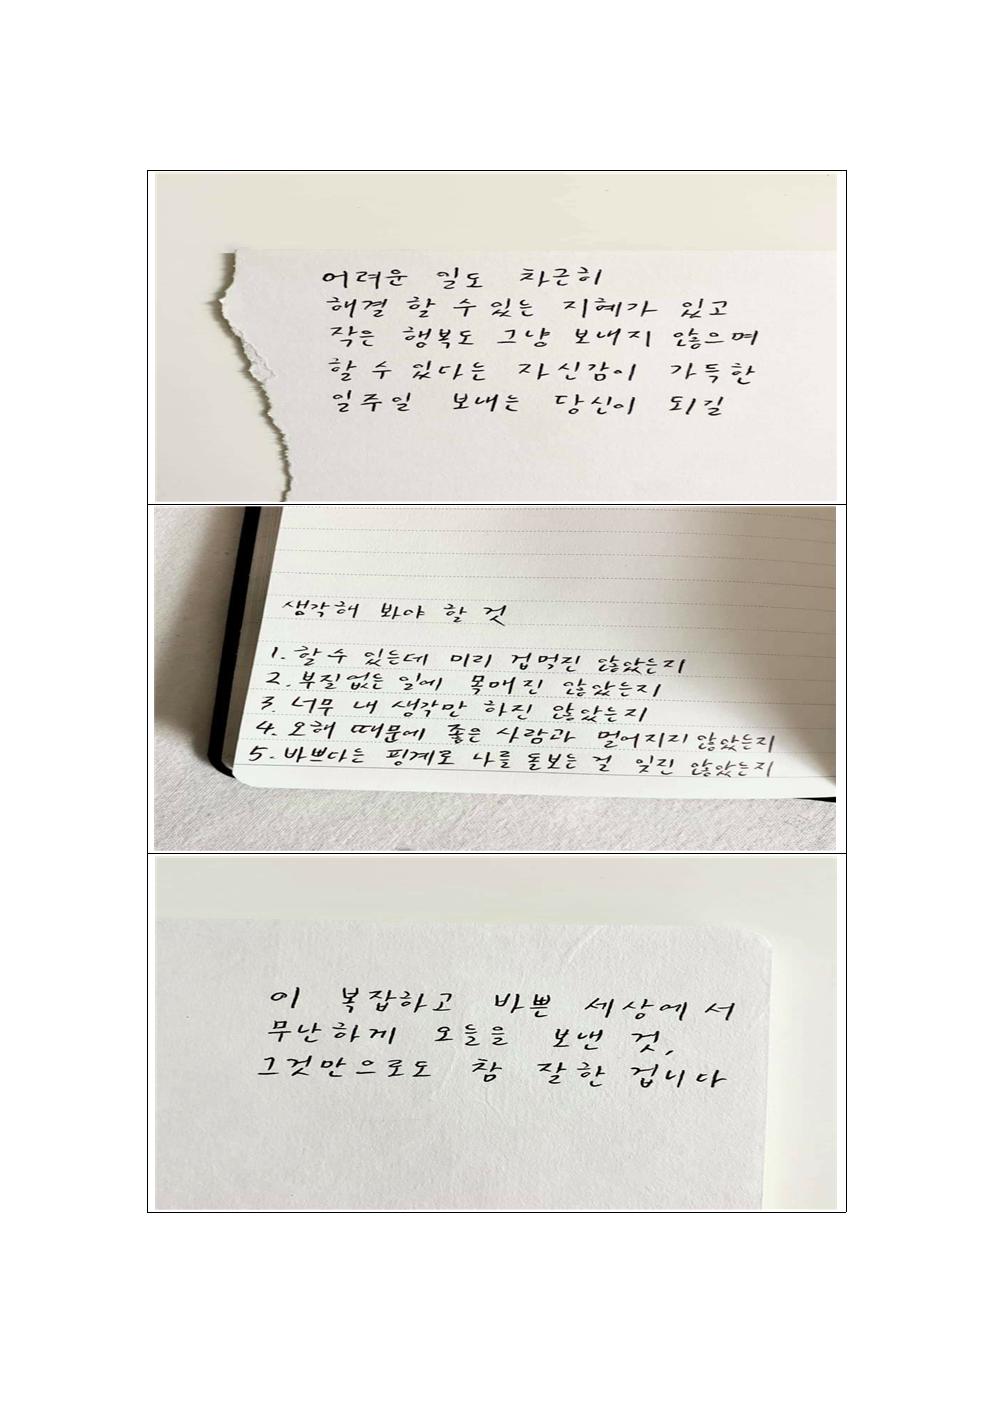 어려운 일도 차근히
해결 할 수 있는 지혜가 있고
작은 행복도 그냥 보내지 않으며
할 수 있다는 자신감이 가득한
일주일 보내는 당신이 되길
생각해 봐야 할 것
1. 할 수 있는데 미리 겁먹진 않았는지
2. 부질없는 일에 목매진 않았는지
3. 너무 내 생각만 하진 않았는지
4. 오해 때문에 좋은 사람과 멀어지지 않았는지
5. 바쁘다는 핑계로 나를 돌보는 걸 잊진 않았는지
이 복잡하고 바쁜 세상에서
무난하게 오늘을 보낸 것,
그것만으로도 참 잘한 겁니다